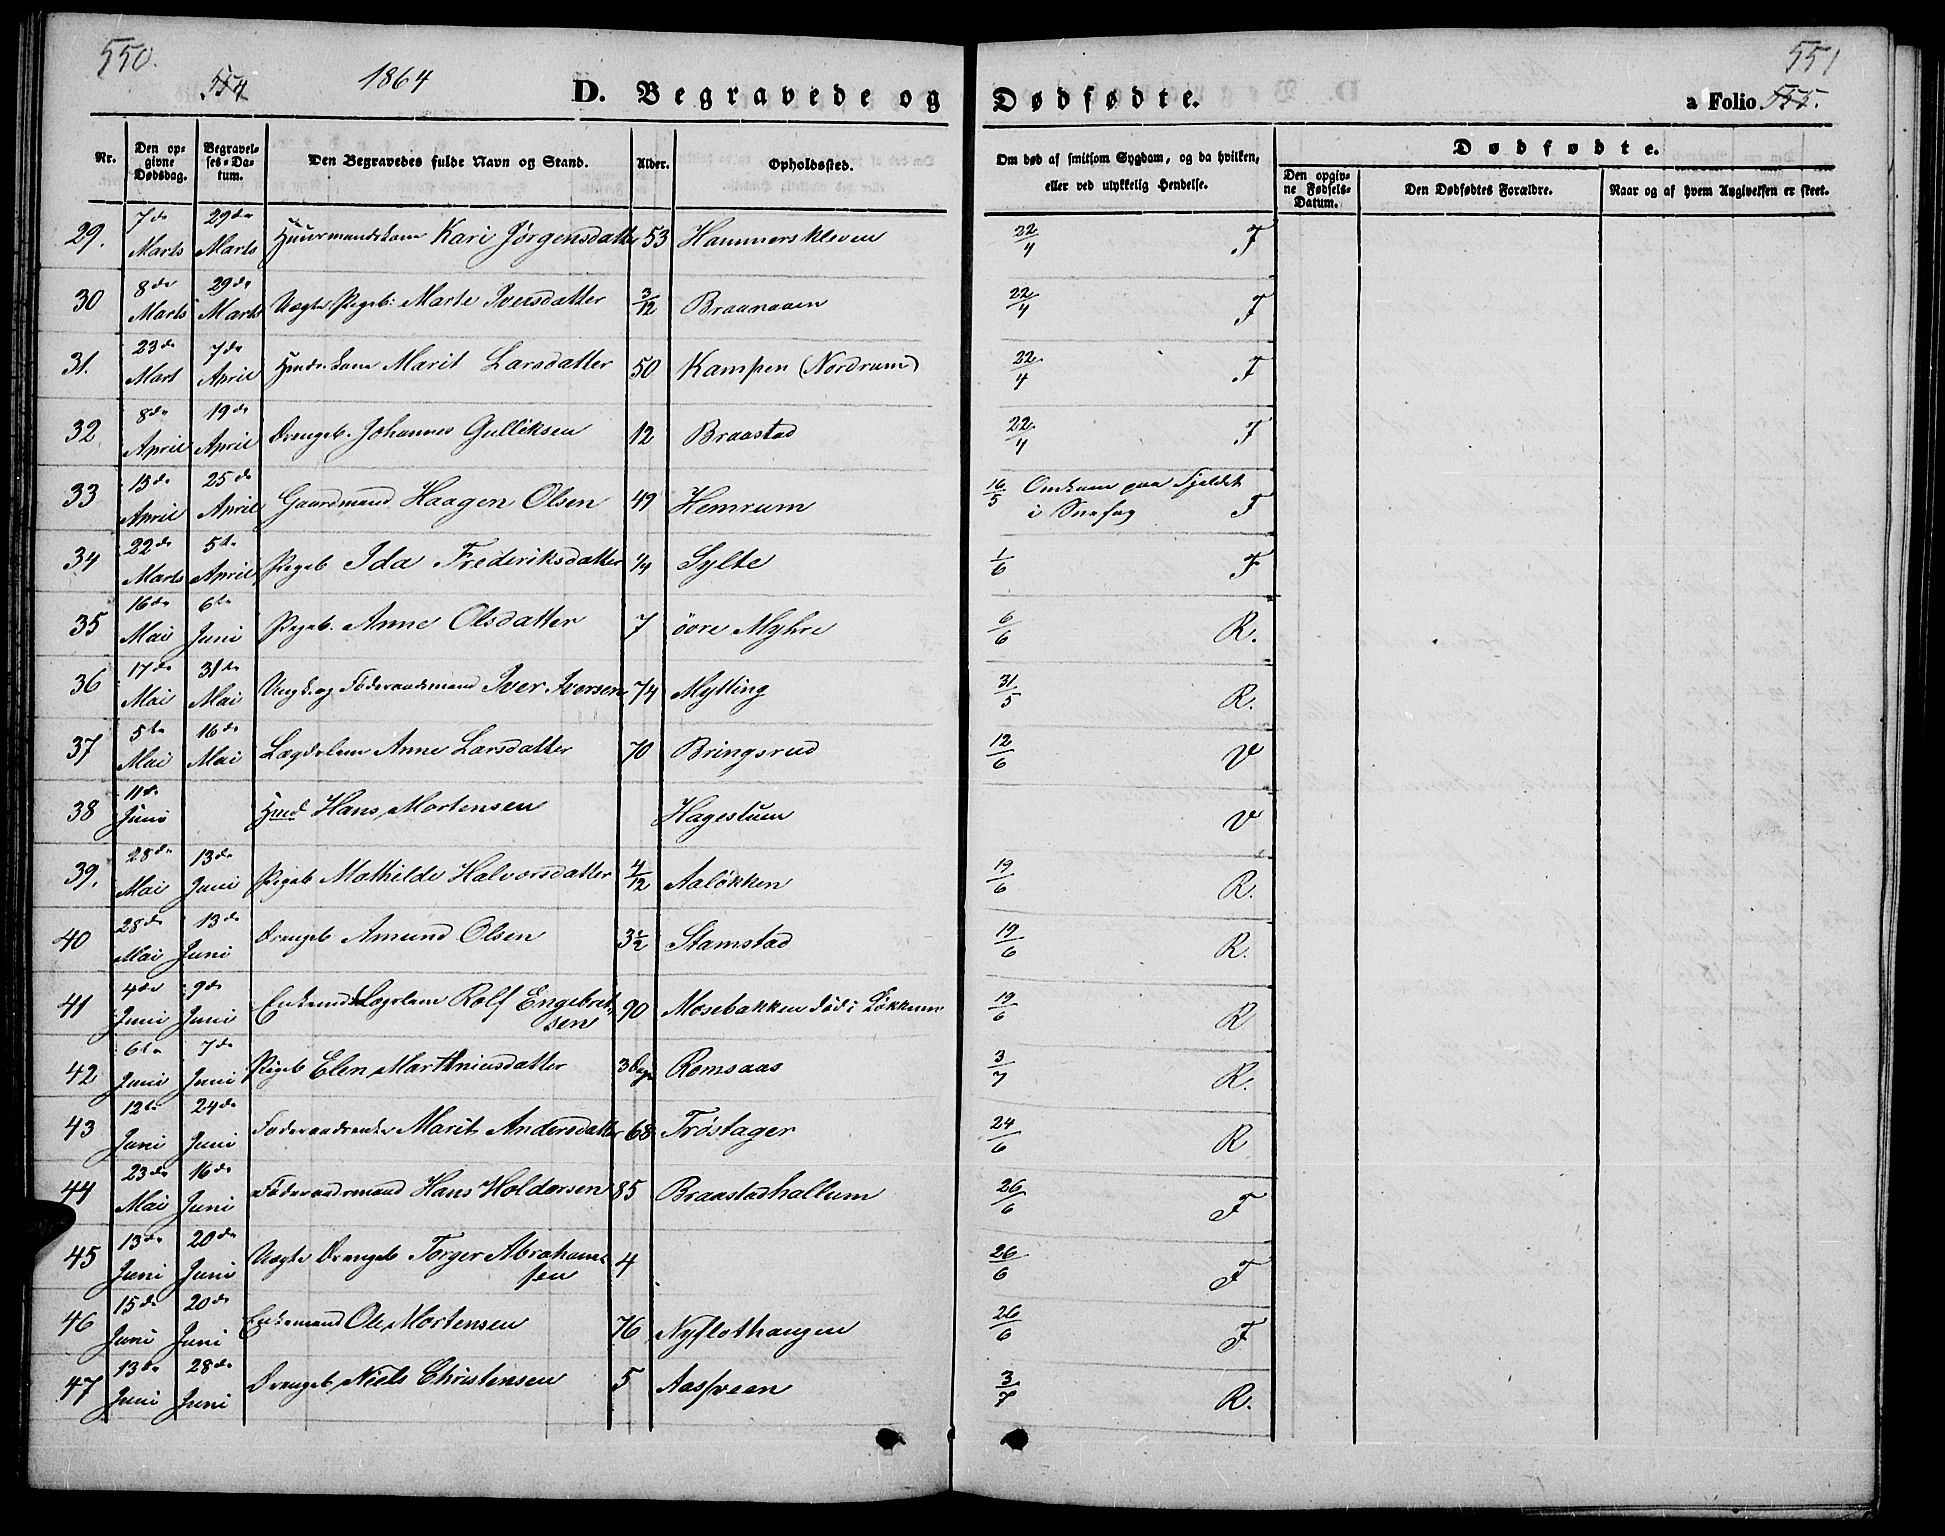 550.
554
1864
D. Begravede og
Nr.
Den op-
givne
Dødsdag.
Begravel-
ses-Da-
tum.
Den Begravedes fulde Navn og Stand.
Alder.
Opholdssted.
29. 7de Marts 29de Marts Huusmandskone Kari Jørgensdatter 53 Hammerskleven
30 8de Marts 29de Marts Uægte Pigeb: Marte Iversdatter 3/12 Braanaaen
31. 23de Mart 7de April Kone Marit Larsdatter 50 Kampen (Nordrum)
32 8de April 19de April Drengeb. Johannes Gulliksen 12 Braastad
33 13de April 25de April Gaardmand Haagen Olsen 49 Hemrum
34 22de Marts 5te April Pigeb Ida Frederiksdatter 1/4 Sylte
35 16de Mai 6te Juni Pigeb. Anne Olsdatter 7 övre Myhre
36 17de Mai 31te Mai Ungk. og Föderaadsmand Iver Iversen 74 Mytting
37 5te Mai 16de Mai Lægdslem Anne Larsdatter 70 Bringsrud
38 11te Juni Hmd Hans Mortensen Hagestuen
39. 28de Mai 13de Juni Pigeb Mathilde Halvorsdatter 4/12 Aaløkken
40 28de Mai 13de Juni Drengeb Amund Olsen 3½ Stamstad
41 4de Juni 9de Juni Enkemd Lægslem Rolf Engebret-
sen 90 Mosebakken död i Løkkener
42 6te Juni 7de Juni Pigeb Elen Marthniusdatter 3 Dage Romsaas
43 12te Juni 24de Juni Föderaadsenke Marit Andersdatter 68 Trøstager
44 23de Mai 16de Juni Föderaadsmand Hans Holdorsen 85 Braastadhallum
45 13de Juni 20de Juni Uægte Drengeb Torger Abrahams
sen 4
46 15de Juni 20de Juni Enkemand Ole Mortensen 76 Nyflothaugen
47 13de Juni 28de Juni Drengeb. Niels Christensen 5 Aasveen
551
Dødfødte.
a Folio 555.
Om død af smitsom Sygdom, og da hvilken,
eller ved ulykkelig Hendelse.
Dødfødte.
Den opgiv-
ne Fødsels-
Datum.
Den Dødfødtes Forældre.
Naar og af hvem Angivelsen er skeet.
22/4 F
22/4 F
22/4 F
22/4 F
16/5 Omkom paa Fjeldet
i Snefog F
1/6 F
6/6 R.
31/5 R.
12/6 V
V
19/6 R.
19/6 R.
19/6 R
3/7 R.
24/6 R
26/6 F
26/6 F
26/6 F
3/7 R.